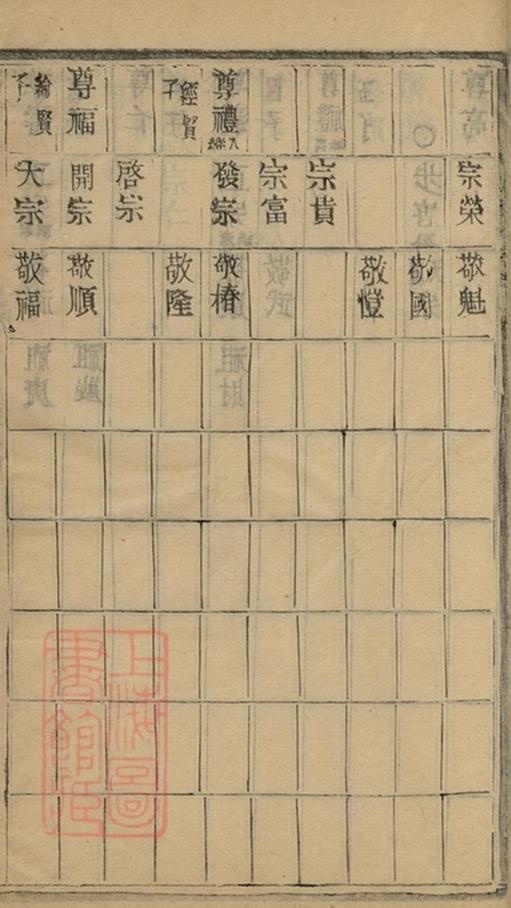 宗榮 敬魁
敬國
敬愷
宗貴
宗富
尊禮 發宗 敬椿
經賢子 敬隆
啓宗
尊福 開宗 敬順
綸賢子 大宗 敬福
上海圖
書館藏